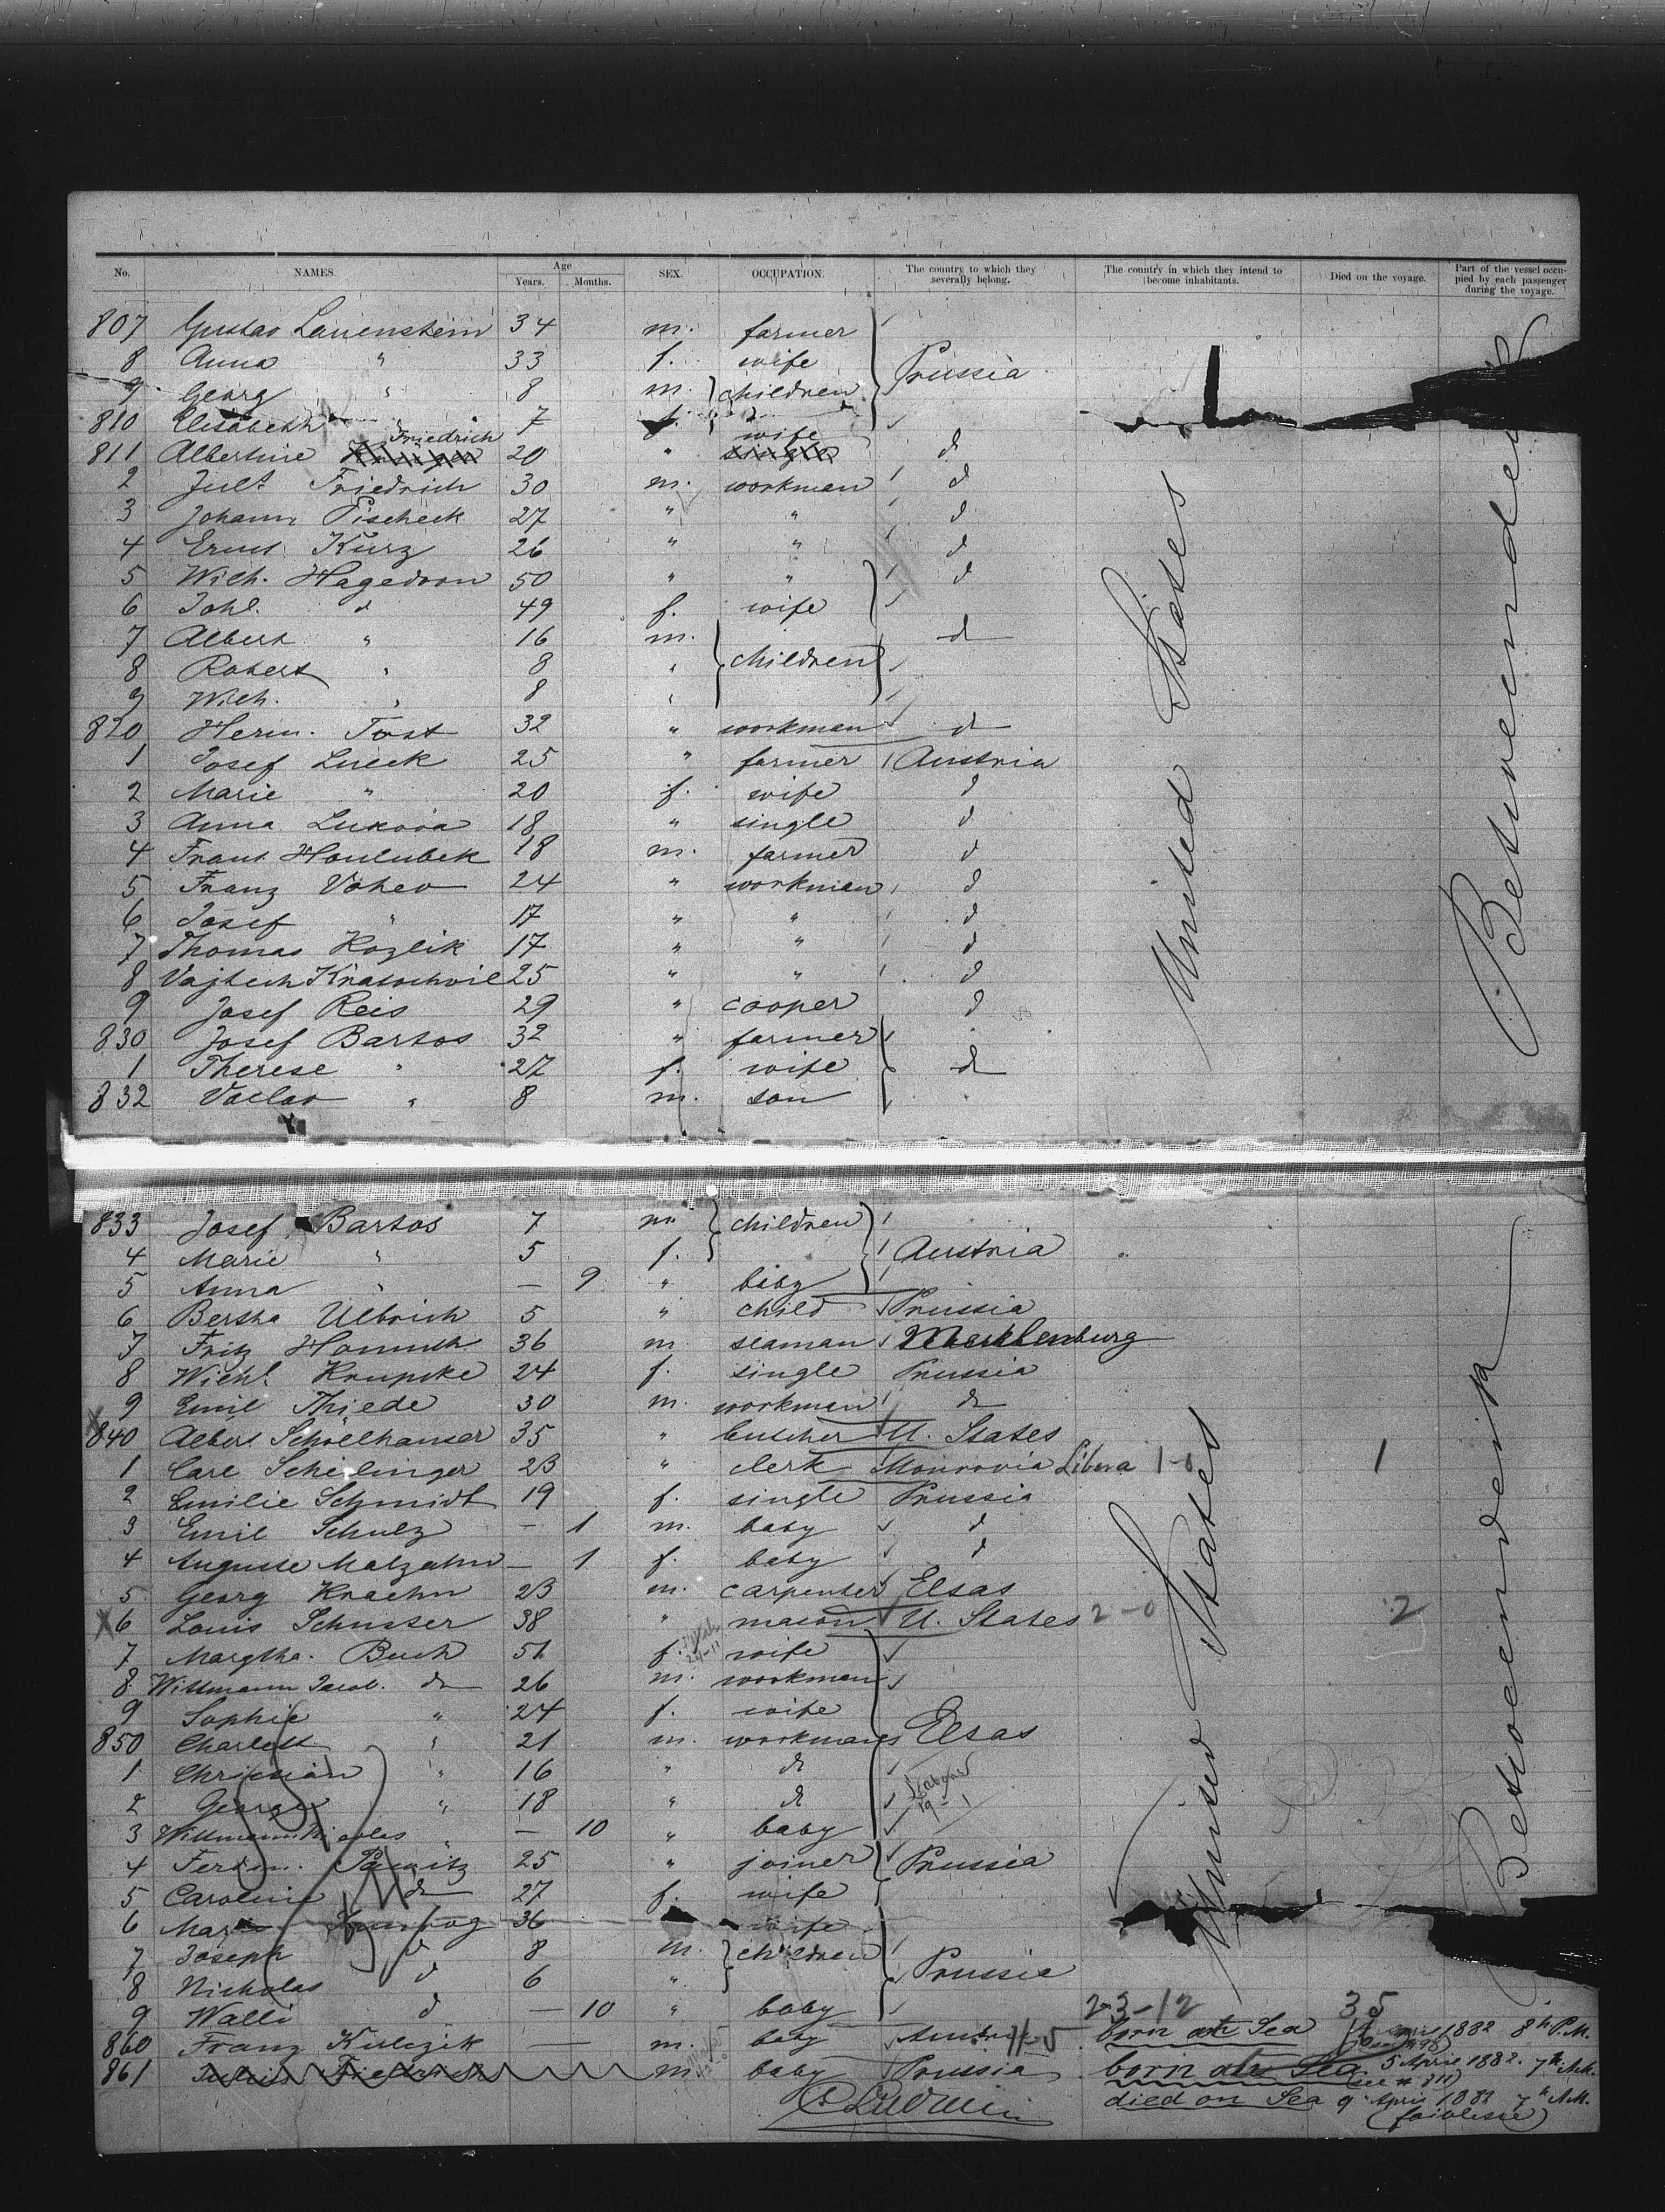 No. NAMES. Age Years. Months. SEX. OCCUPATION. The country to which they severally belong. The country in which they intend to become inhabitants. Died on the voyage. Part of the vessel occupied by each passenger during the voyage.
807 Gustav Lauenstein 34 m. farmer
8 Anna " 33 f. wife Prussia
9 Georg " 8 m. children
810 Elisabeth 7 f.
Friedrich wife
811 Albertine 20 " single d
2 Jul. Friedrich 30 m. workman d
3 Johann Pischeck 27 " " d
4 Ernst Kurz 26 " " d
5 Wilh. Hagedorn 50 " " d
6 Joh. d 49 f. wife
7 Albert " 16 m. d
8 Robert " 8 " children
9 Wilh. " 8 "
820 Herm. Tost 32 " workman d
1 Josef Lueck 25 " farmer Austria
2 Marie " 20 f. wife d
3 Anna Lukova 18 " single d
4 Franz Houlubek 18 m. farmer d
5 Franz Vohev 24 " workman d
6 Josef " 17 " " d
7 Thomas Kozlik 17 " " d
8 Vajtech Kratochvil 25 " " d
9 Josef Reis 29 " cooper d
830 Josef Bartos 32 " farmer
1 Therese " 27 f. wife d
832 Vaclav " 8 m. son
United States
Betweendeck
833 Josef Bartos 7 m children
4 Marie " 5 f. Austria "
5 Anna " — 9 " baby
6 Bertha Ulbrich 5 " child Prussia
7 Fritz Hommuth 36 m seaman Mecklenburg
8 Wilhl. Krupske 24 f. single Prussia
9 Emil Thiede 30 m. workman d
840 Albert Schoellhauser 35 " butcher U. States
1 Carl Scheilinger 23 " clerk Monrovia Libera 1-0 1
2 Emilie Schmidt 19 f. single Prussia
3 Emil Schulz — 1 m. baby d
4 Auguste Malzahn — 1 f. baby d
5 Georg Kraehn 23 m. carpenter Elsas
6 Louis Schuster 38 " mason U. States 2-0 2
7 Margtha. Buch 51 f. wife
8 Wittmann Jacob. d 26 m. workman
9 Sophie " 24 f. wife
850 Charlett " 21 m. workman Elsas
1 Christian " 16 " d
2 George " 18 " d
3 Wittmann Nicolas " — 10 " baby
4 Ferdin. 25 " joiner Prussia
5 Caroline d 27 f. wife
6 36 wife
7 Joseph d 8 m. children
8 Nicholas d 6 " Prussia
9 Walli d — 10 " baby 23-12 35
860 Franz Kulczik — m. baby 11-5 born at Sea 1882 8h P.M.
861 m. baby Prussia born at Sea 5 April 1882. 7h A.M.
(see # 811)
died on Sea 9 April 1882 7h A.M.
United States
Betweendeck